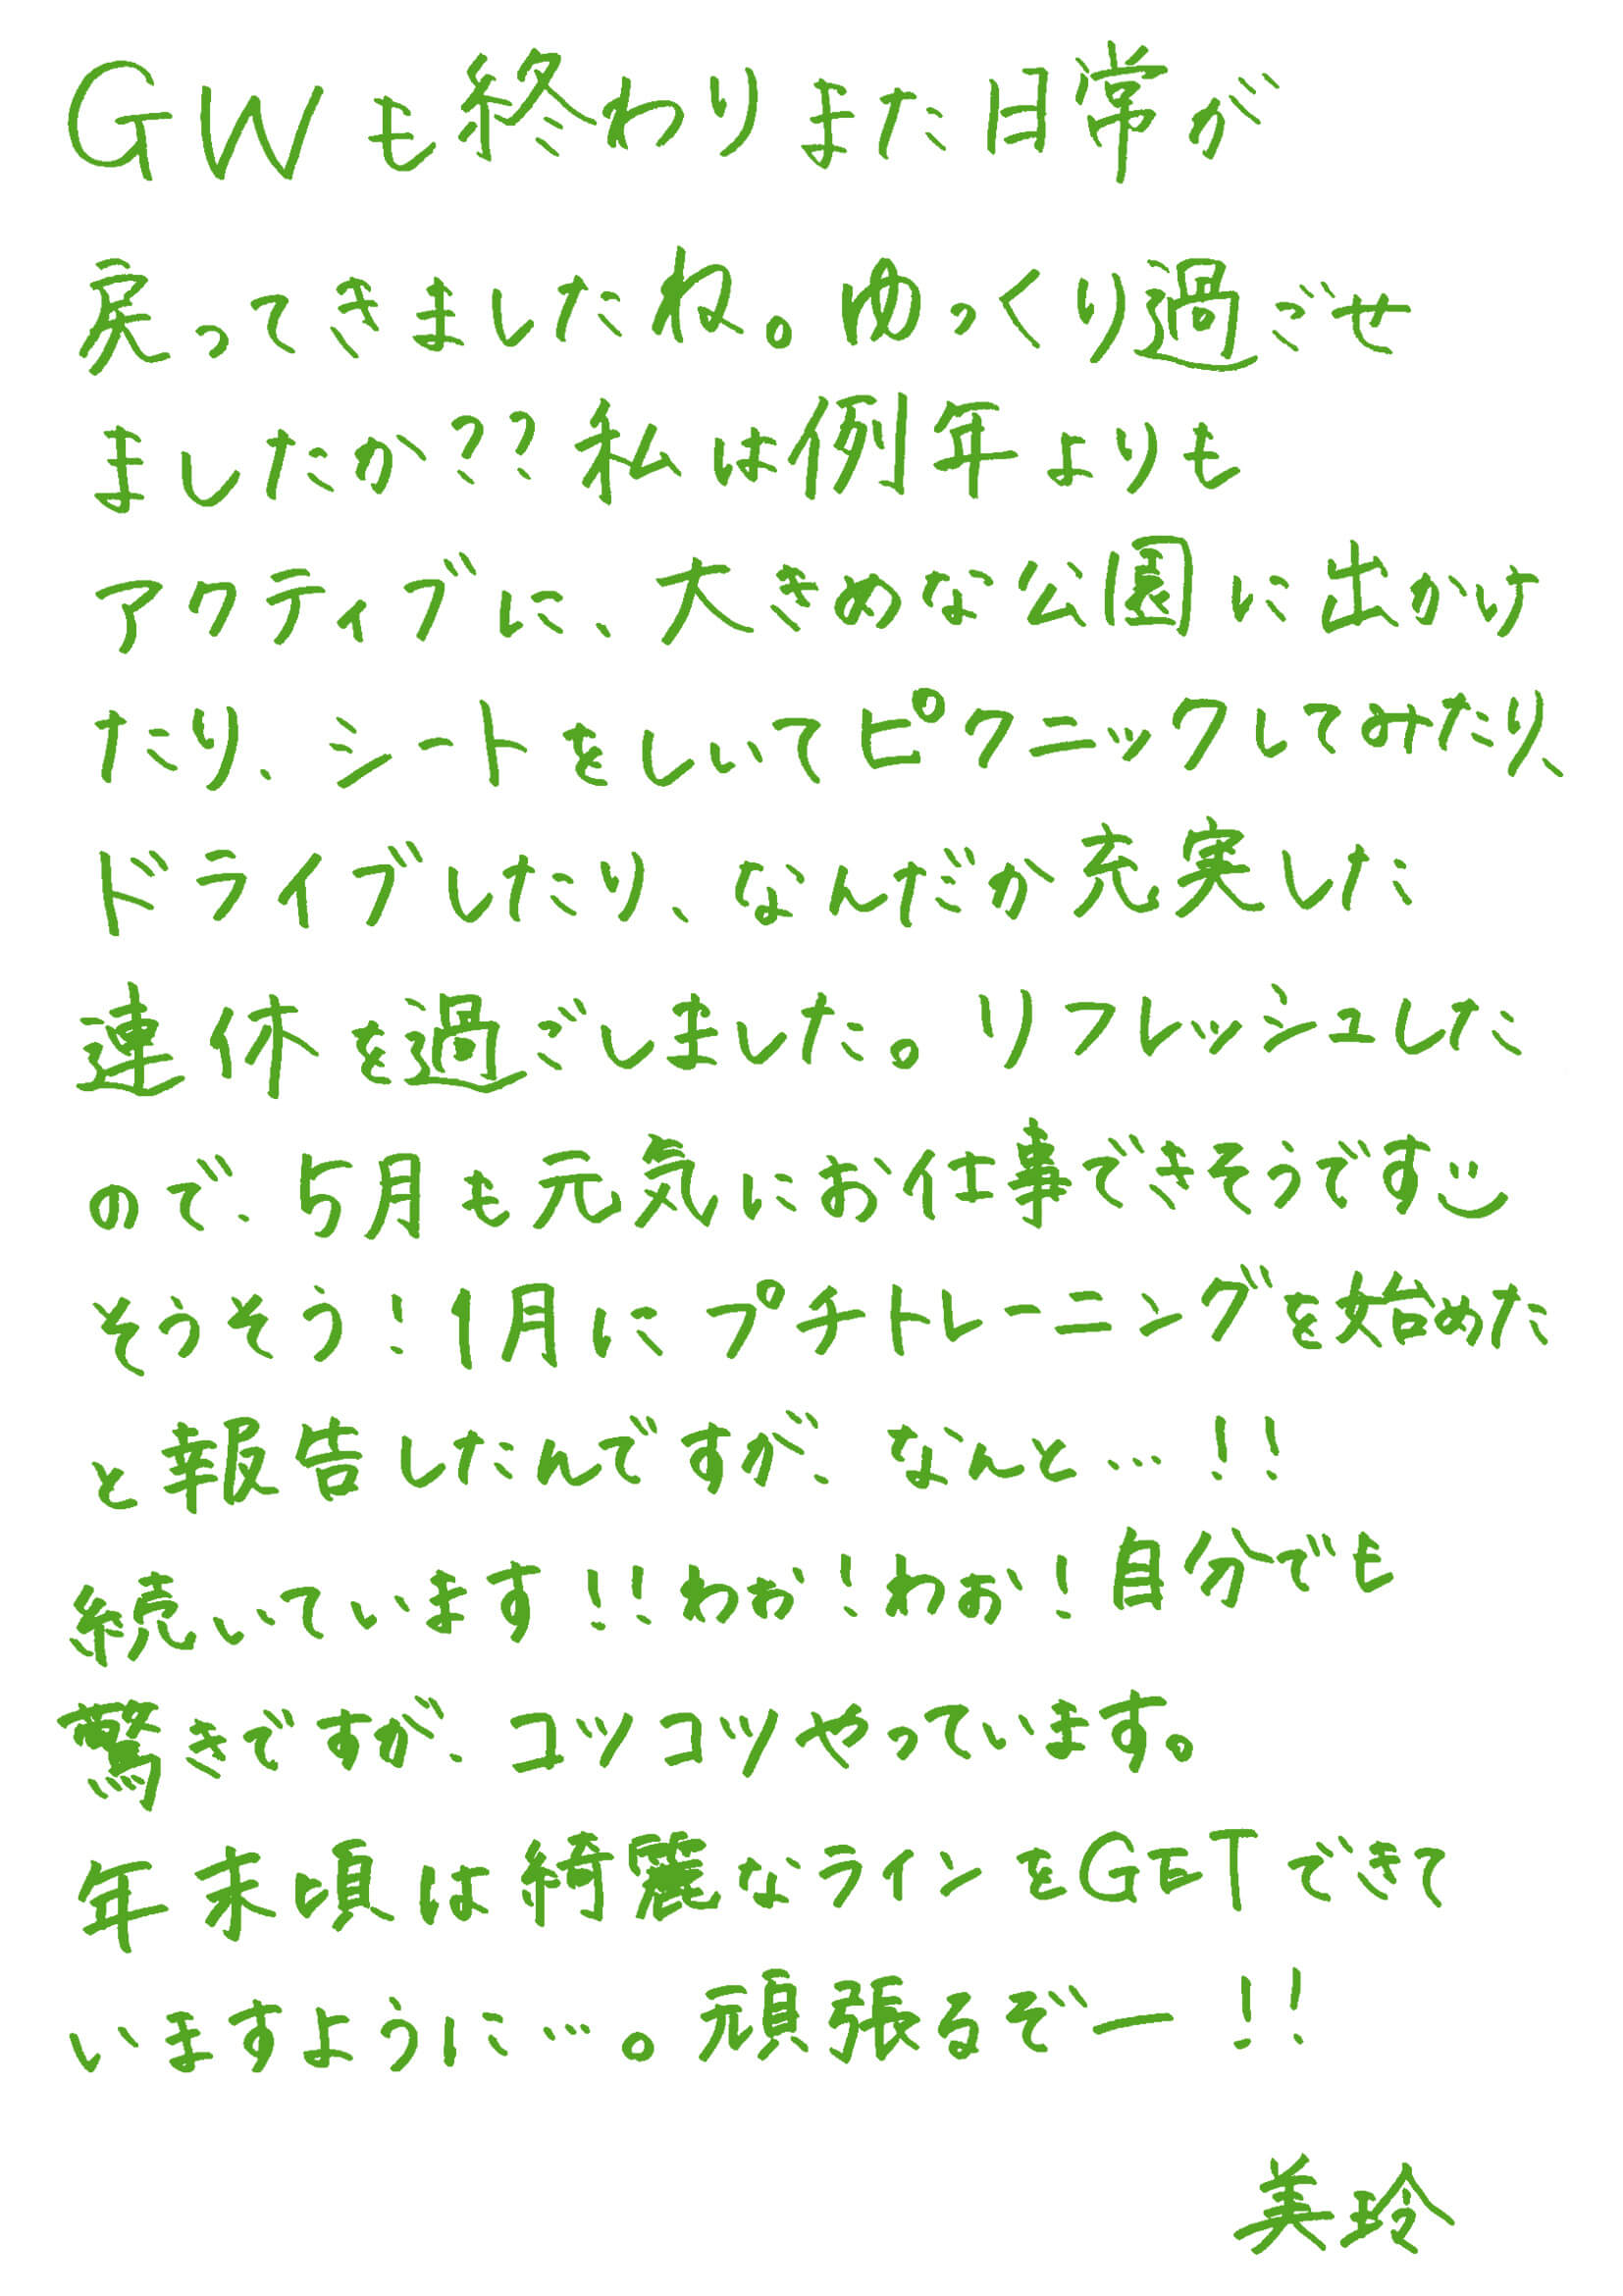 GWも終わりまた日常が
戻ってきましたね。ゆっくり過ごせ
ましたか??私は例年よりも
アクティブに、大きめな公園に出かけ
たり、シートをしいてピクニックしてみたり、
ドライブしたり、なんだか充実した
連休を過ごしました。リフレッシュした
ので、5月も元気にお仕事できそうです
そうそう!1月にプチトレーニングを始めた
と報告したんですが、なんと…!!
続いています!!わお!わお!自分でも
驚きですが、コツコツやっています。
年末頃は綺麗なラインをGETできて
いますように…。頑張るぞー!!
美玲